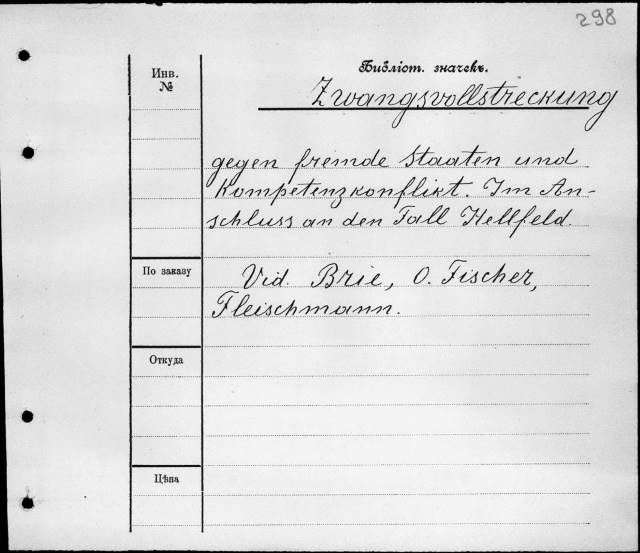 298
Инв.
№
Библіот. значекъ.
Zwangsvollstreckung
gegen fremde Staaten und
Kompetenzkonflikt. Im An-
schluss an den Fall Hellfeld.
По заказу
Vid. Brie, O. Fischer,
Fleischmann.
Откуда
Цѣна